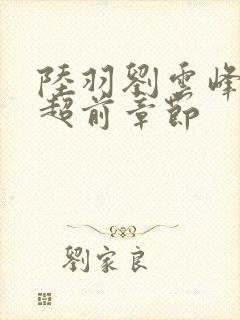 陸羽劉雲峰
超前章節
劉家良